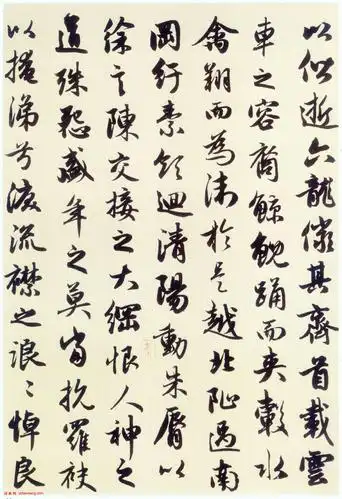 以偕逝六龍儼其齊首載雲
車之容裔鯨鯢踊而夾轂水
禽翔而為衛於是越北沚過南
岡紆素領迴清陽動朱脣以
徐言陳交接之大綱恨人神之
道殊怨盛年之莫當抗羅袂
以掩涕兮淚流襟之浪〻悼良